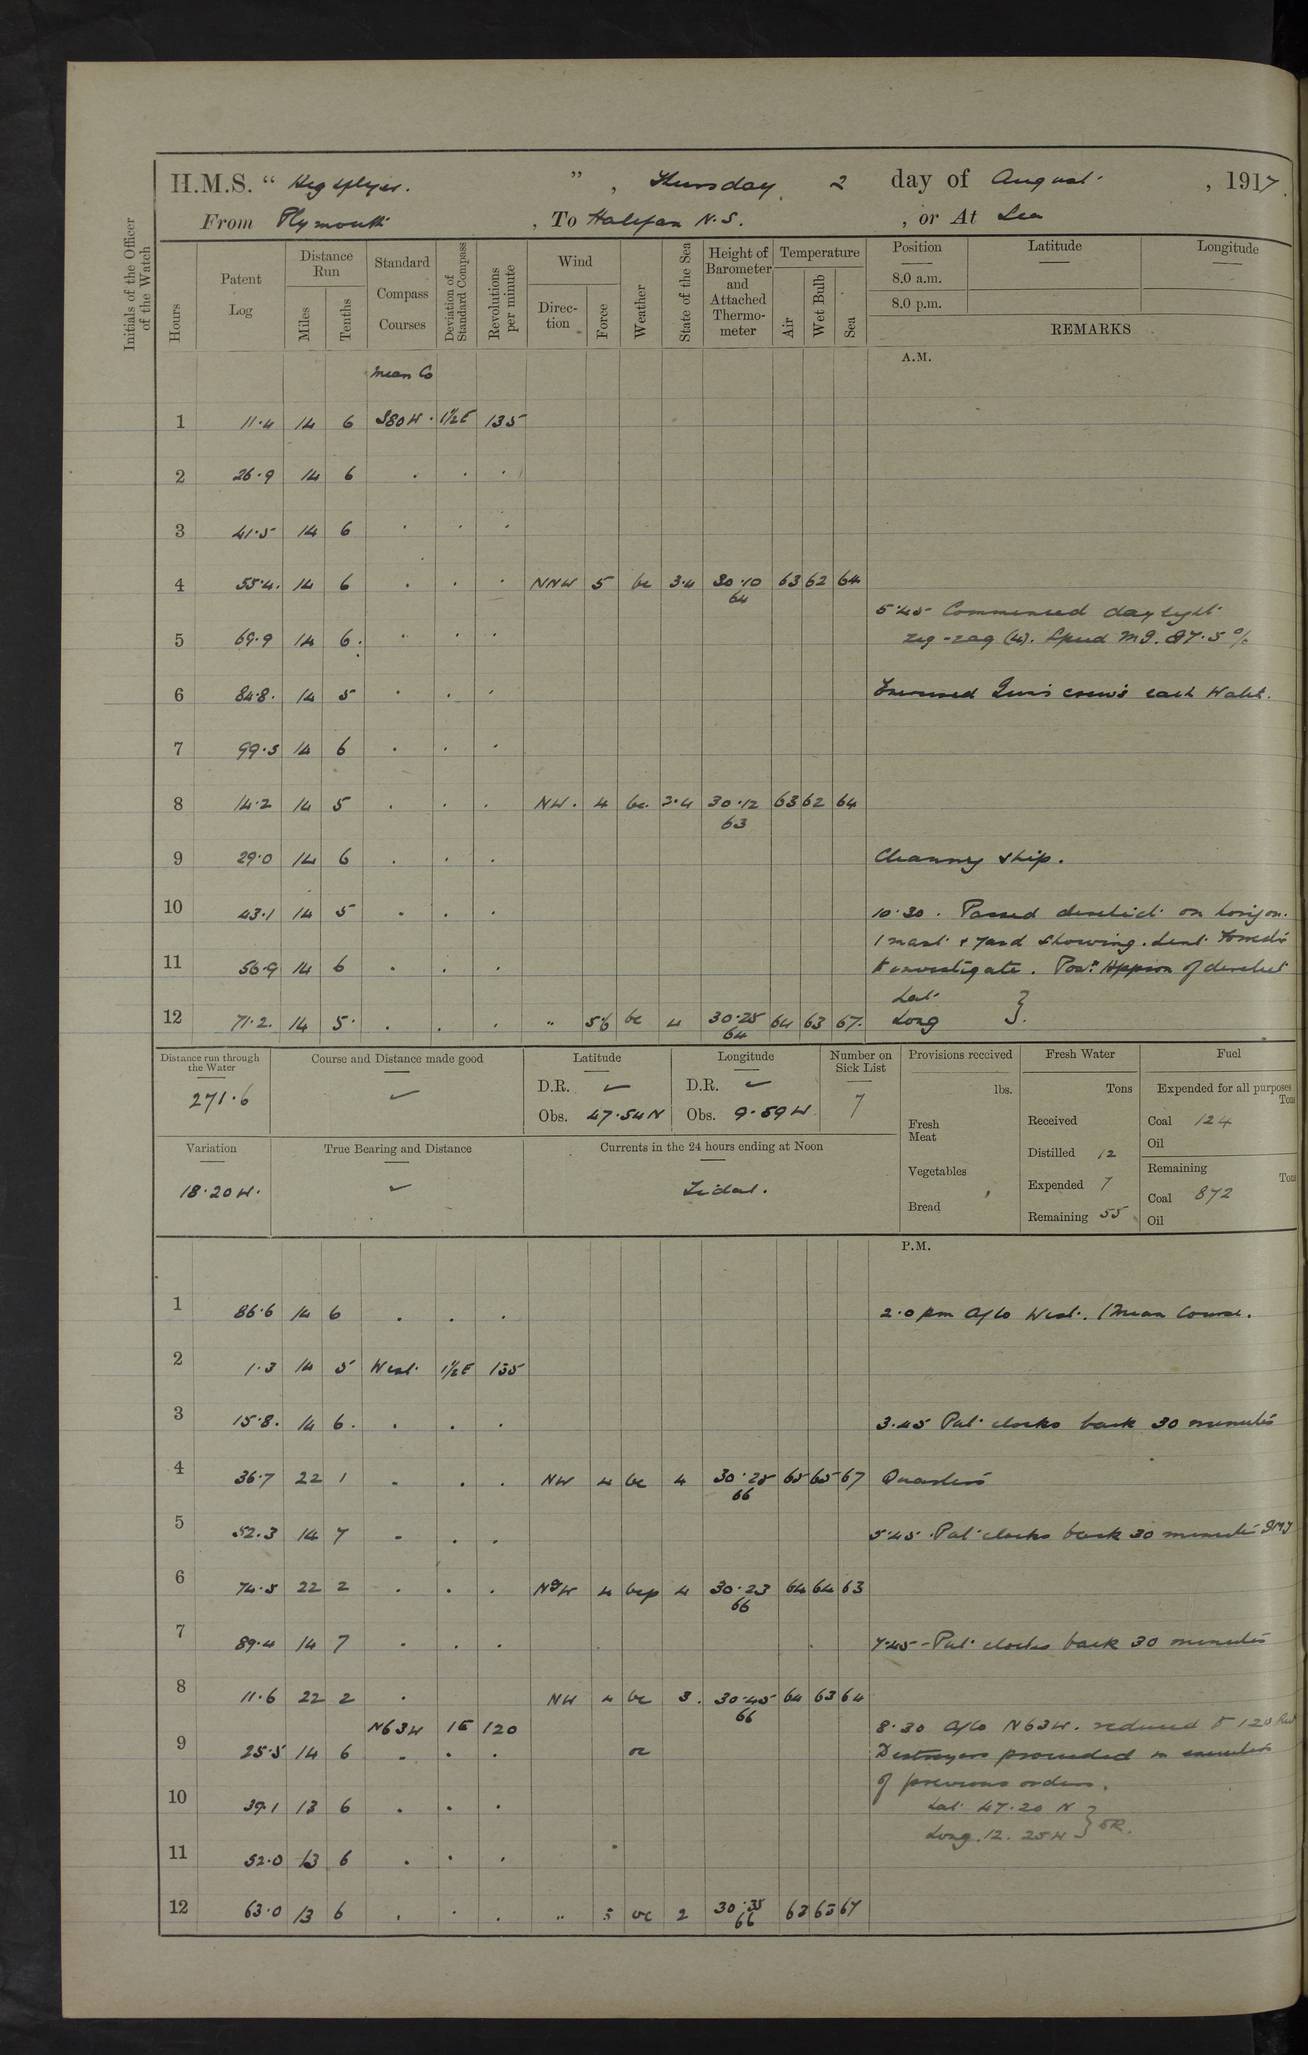 H.M.S. “ Highflyer. ” , Thursday 2 day of August , 1917.
From Plymouth , To Halifax N.S. , or At Sea
Initials of the Officer of the Watch
Hours
Patent Log
Distance Run
Miles
Tenths
Standard Compass Courses
Deviation of Standard Compass
Revolutions per minute
Wind
Direction
Force
Weather
State of the Sea
Height of Barometer and Attached Thermometer
Temperature
Air
Wet Bulb
Sea
Position
Latitude
Longitude
8.0 a.m.
8.0 p.m.
REMARKS
A.M.
mean Co
1 11.4 14 6 S80W. 1½E 135
2 26.9 14 6 . . .
3 41.5 14 6 . . .
4 55.4. 14 6 . . . NNW 5 bc 3.4 30.10 63 62 64
64
5.45 Commenced daylight
5 69.9 14 6. . . . zig-zag (4). Speed M.G. 87.5%
6 84.8. 14 5 . . . Exercised Gun's crew's each Watch.
7 99.5 14 6 . . .
8 14.2 14 5 . . . NW. 4 bc. 3.4 30.12 63 62 64
63
9 29.0 14 6 . . . Cleaning ship.
10 43.1 14 5 . . . 10.30. Passed derelict on horizon.
1 mast & yard showing. Sent
11 56.9 14 6 . . . to investigate. Posn. Approx of derelict
Lat }
12 71.2. 14 5. . . . " 5.6 bc 4 30.25 64 63 67. Long }.
64
Distance run through the Water
271.6
Course and Distance made good
✓
Latitude
D.R. ✓
Obs. 47.54N
Longitude
D.R. ✓
Obs. 9.59W
Number on Sick List
7
Provisions received
lbs.
Fresh Meat
Vegetables
Bread
Fresh Water
Tons
Received
Distilled 12
Expended 7
Remaining 55
Fuel
Expended for all purposes
Tons
Coal 124
Oil
Remaining
Tons
Coal 872
Oil
Variation
18.20W.
True Bearing and Distance
✓
Currents in the 24 hours ending at Noon
Tidal.
P.M.
1 86.6 14 6 . . . 2.0 pm A/Co West. (Mean Course.
2 1.3 14 5 West. 1½E 135
3 15.8. 14 6. . . . 3.45 Put clocks back 30 minutes
4 36.7 22 1 . . . NW 4 bc 4 30.25 65 65 67 Quarters
66
5 52.3 14 7 . . . 5.45. Put clocks back 30 minutes
6 74.5 22 2 . . . 4 bcp 4 30.23 64 64 63
66
7 89.4 14 7 . . . 7.45 - Put clocks back 30 minutes
8 11.6 22 2 . NW 4 bc 3. 30.45 64 63 64
66
N63W 1E 120 8.30 A/Co N63W. reduced to 120 Revs
9 25.5 14 6 . . . oc Destroyers proceeded in execution
of previous orders.
10 39.1 13 6 . . . Lat 47.20 N }
Long. 12. 25W } DR.
11 52.0 13 6 . . .
12 63.0 13 6 . . . " 5 oc 2 30.35 63 63 67
66